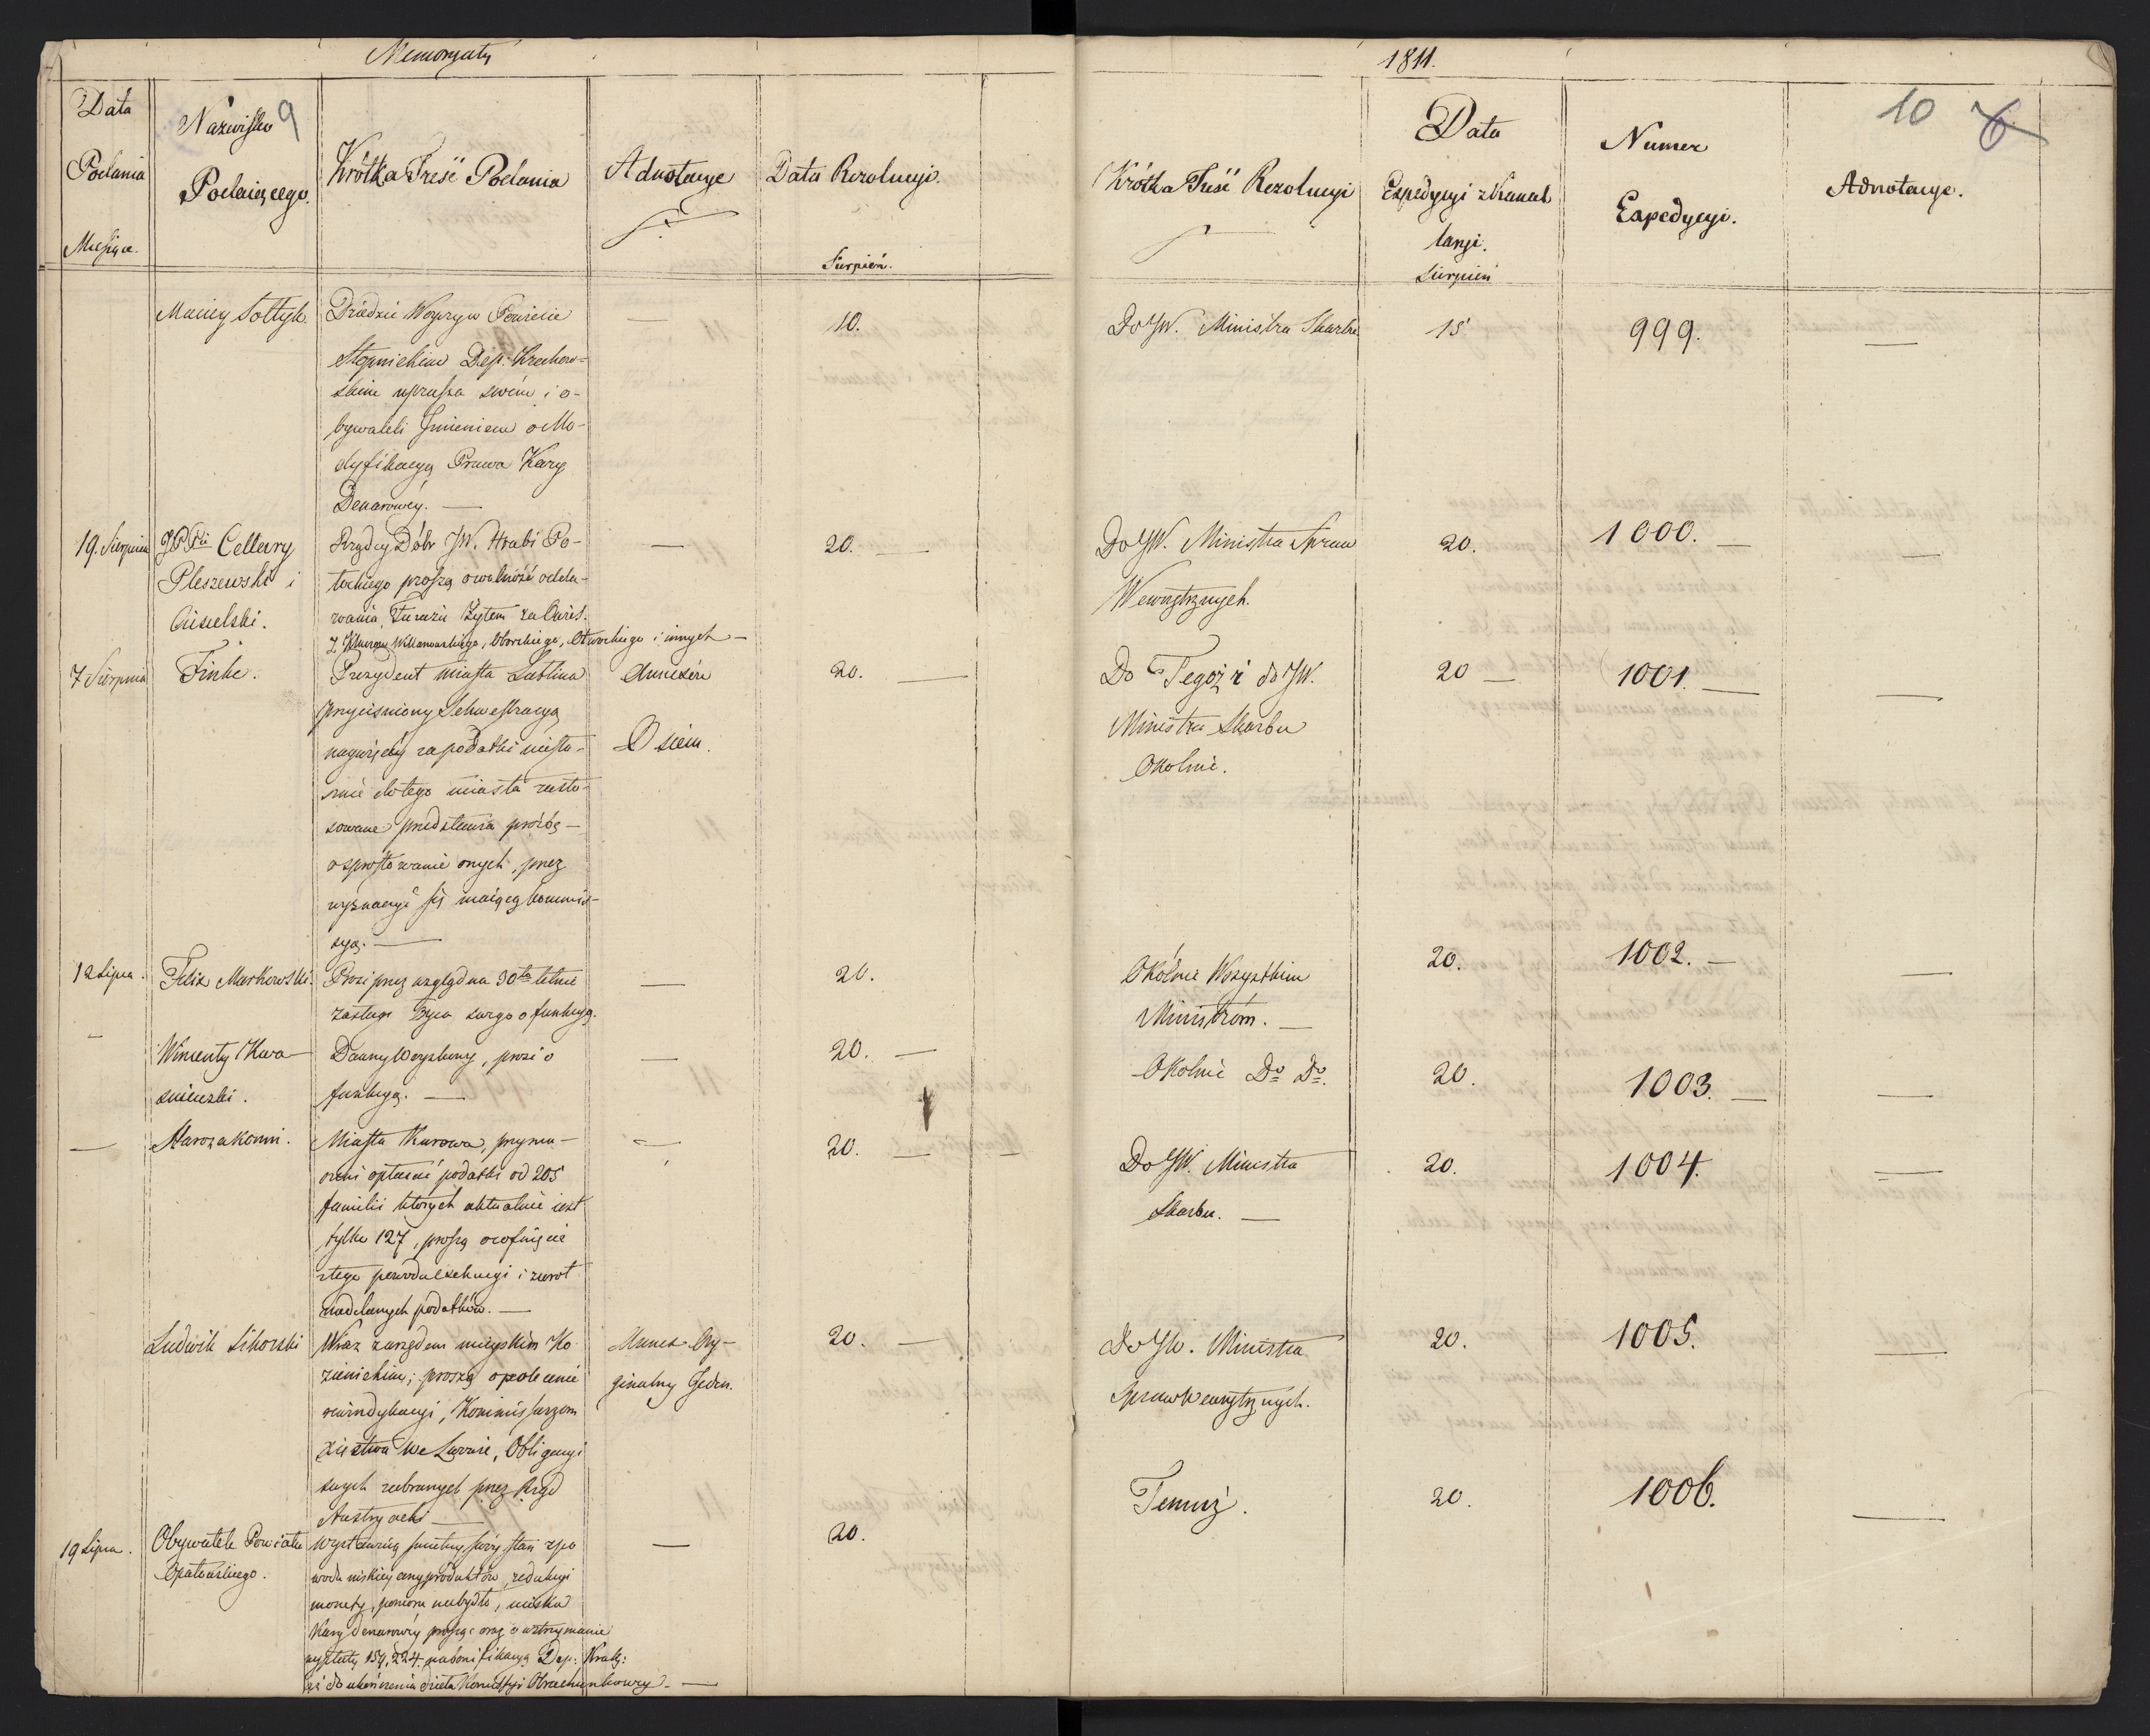 Memoryały
1811.
9
10
6
Data
Podania
Miesiąca.
Nazwisko
Podaiącego.
Krótka Treść Podania
Adnotacye
Data Rezolucyi.
Sierpień.
Krótka Treść Rezolucyi
Data
Expedycyi z Kancel
laryi.
Sierpień
Numer
Expedycyi.
Adnotacye.
Maciey Sołtyk
Dziedzic Woyczyc Powiecie
Stopnickim Dep: Krakow-
skim uprasza swém i o-
bywateli Imieniem o Mo-
dyfikacyą Prawa Kary
Denarowéy. —
10.
Do JW. Ministra Skarbu
15
999.
—
19. Sierpnia
JPPii Cellary
Pleszewski i
Cisielski.
Rządcy Dóbr JW. Hrabi Po-
tockiego proszą o wolność odda-
wania Furażu Żytem za Owies.
Z Kluczów Willanowskiego, Oborskiego, i innych —
—
20. —
Do JW. Ministra Spraw
Wewnętrznych.
20.
1000. —
—
7 Sierpnia
Finke.
Prezydent miasta Lublina
przyciśniony Sekwestracyą
naywięcéy za podatki niesto-
sownie do tego miasta zasto-
sowane przedstawia prożbę —
o sprostowanie onych, przez
wyznaczyć się maiącą kommis-
syą. —
Annexów
Osiem.
20. —
Do Tegoż i do JW.
Ministra Skarbu
Okolnie.
20 —
1001. —
—
12 Lipca.
Felix Markowski.
Prosi przez wzgląd na 30to letnie
zasługi Oyca swego o funkcyą.
—
20.
Okólnie Wszystkim
Ministrom. —
20.
1002. —
—
—
Wincenty Kwa-
śniewski.
Dawny Woyskowy, prosi o
funkcyą. —
—
20. —
Okolnie Do Do.
20.
1003. —
—
—
Starozakonni.
Miasta Kurowa, przymu-
szeni opłacać podatki od 205
familii których aktualnie iest
tylko 127, proszą o cofnięcie
z tego powodu exekucyi i zwrot
nadebranych podatków. —
—
20. —
Do JW. Ministra
Skarbu. —
20.
1004.
—
Ludwik Sikorski
Wraz z urzędem mieyskim Ko-
zienickim; proszą o polecenie
rewindykacyi, Kommissarzom
Xięstwa we Lwowie, Obligacyi
swych zabranych przez Rząd
Austryacki —
Annex Ory-
ginalny Jeden.
20. —
Do JW. Ministra
Spraw Wewnętrznych.
20.
1005.
—
19 Lipca.
Obywatele Powiatu
Opatowskiego.
Wystawuią smutny swóy stan z po
wodu niskiéy ceny produktów, redukcyi
monety, pomoru na bydło, ucisku
Kary denarowéy prosząc oraz o wstrzymanie
wypłaty 154,224. na bonifikacyą Dep: Krak:
aż do ukończenia dzieła Komissyi Obrachunkowey. —
—
20.
Temuż.
20.
1006.
—